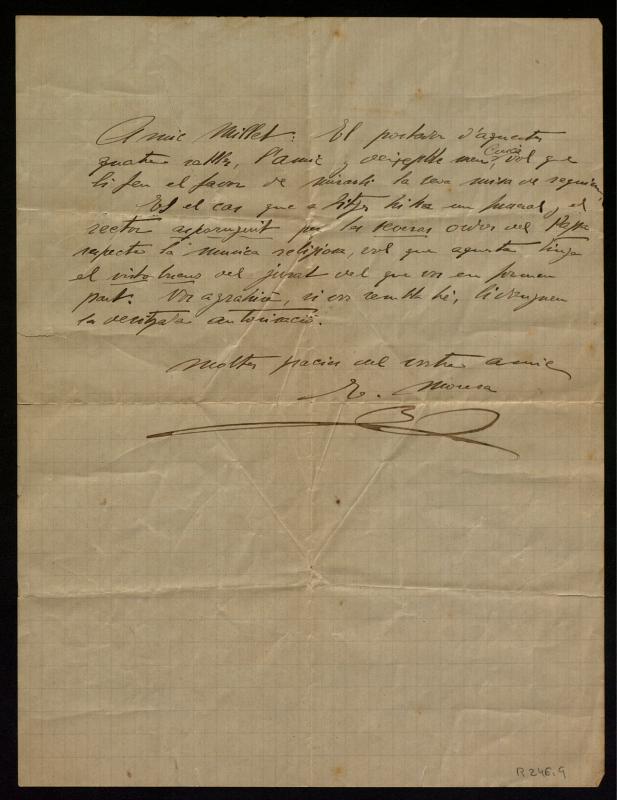 Amic Millet: El portador d'aquestes
quatre ratlles, l'amic y deixeble meu, Cuscó
vol que
li feu el favor de mirarli la seva missa de requiem.
Es el cas que a Sitges hi ha un funeral y el
rector esporuguit per las severas ordres del Papa
respecte la musica religiosa, vol que aquesta tinga
el visto bueno del jurat del que vos en formeu
part. Vos agrahiré, si vos sembla bé, li dongueu
la desitjada autorisació.
Moltes gracies del vostre amic
E. Morera
R.246.9